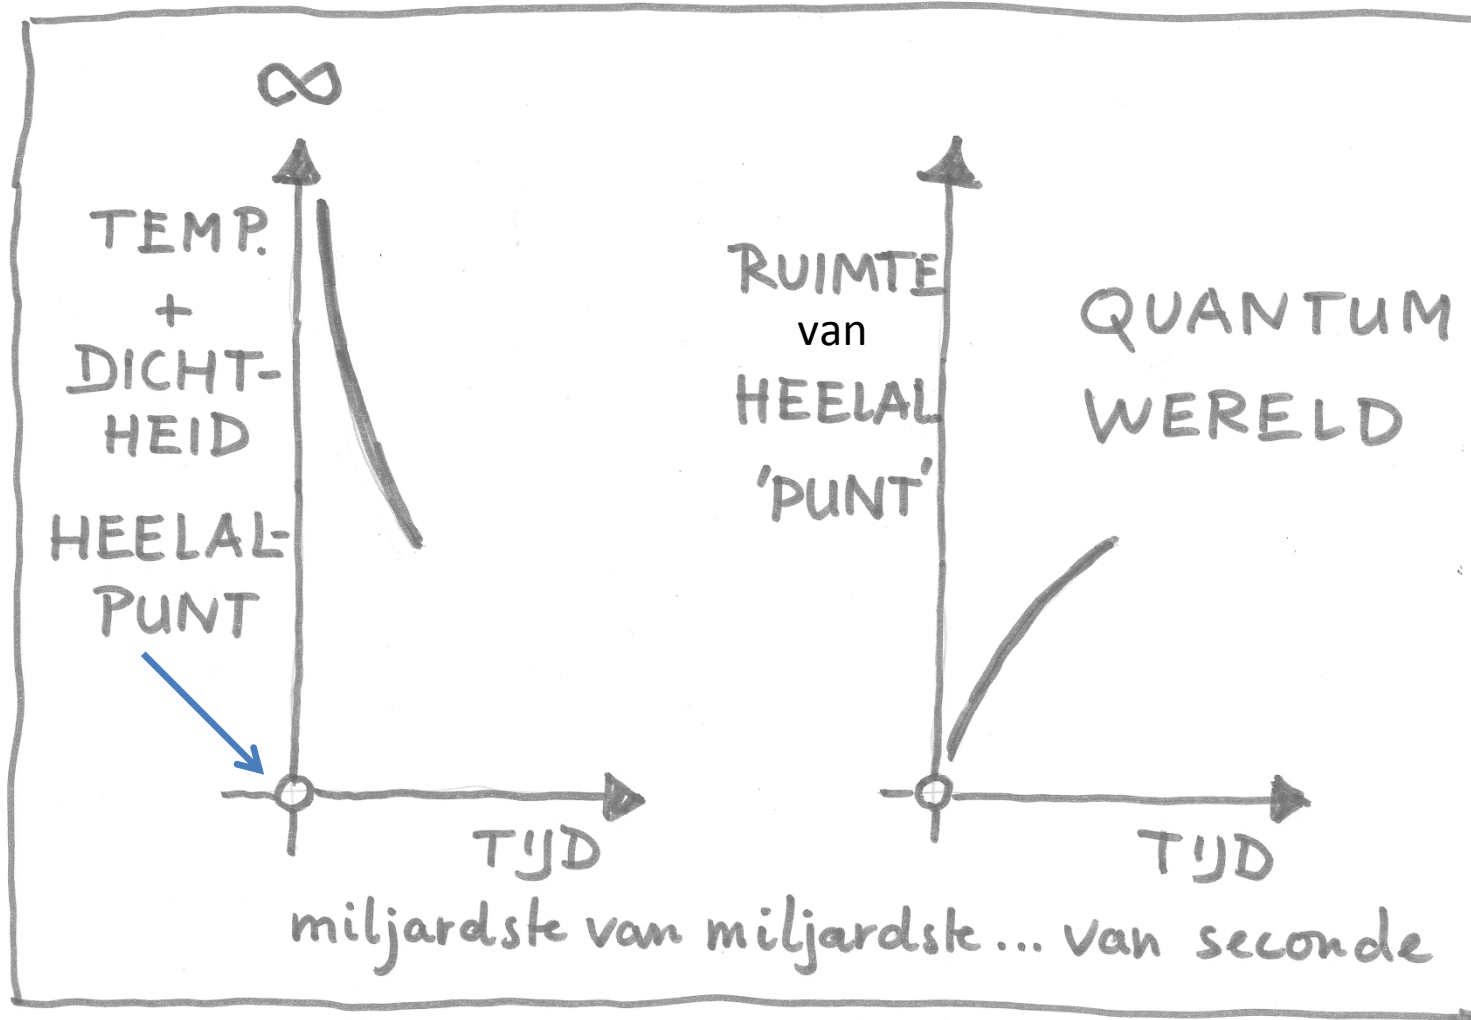 ∞
TEMP.
+
DICHT-
HEID
HEELAL-
PUNT
TIJD
RUIMTE
van
HEELAL
'PUNT'
QUANTUM
WERELD
TIJD
miljardste van miljardste... van seconde